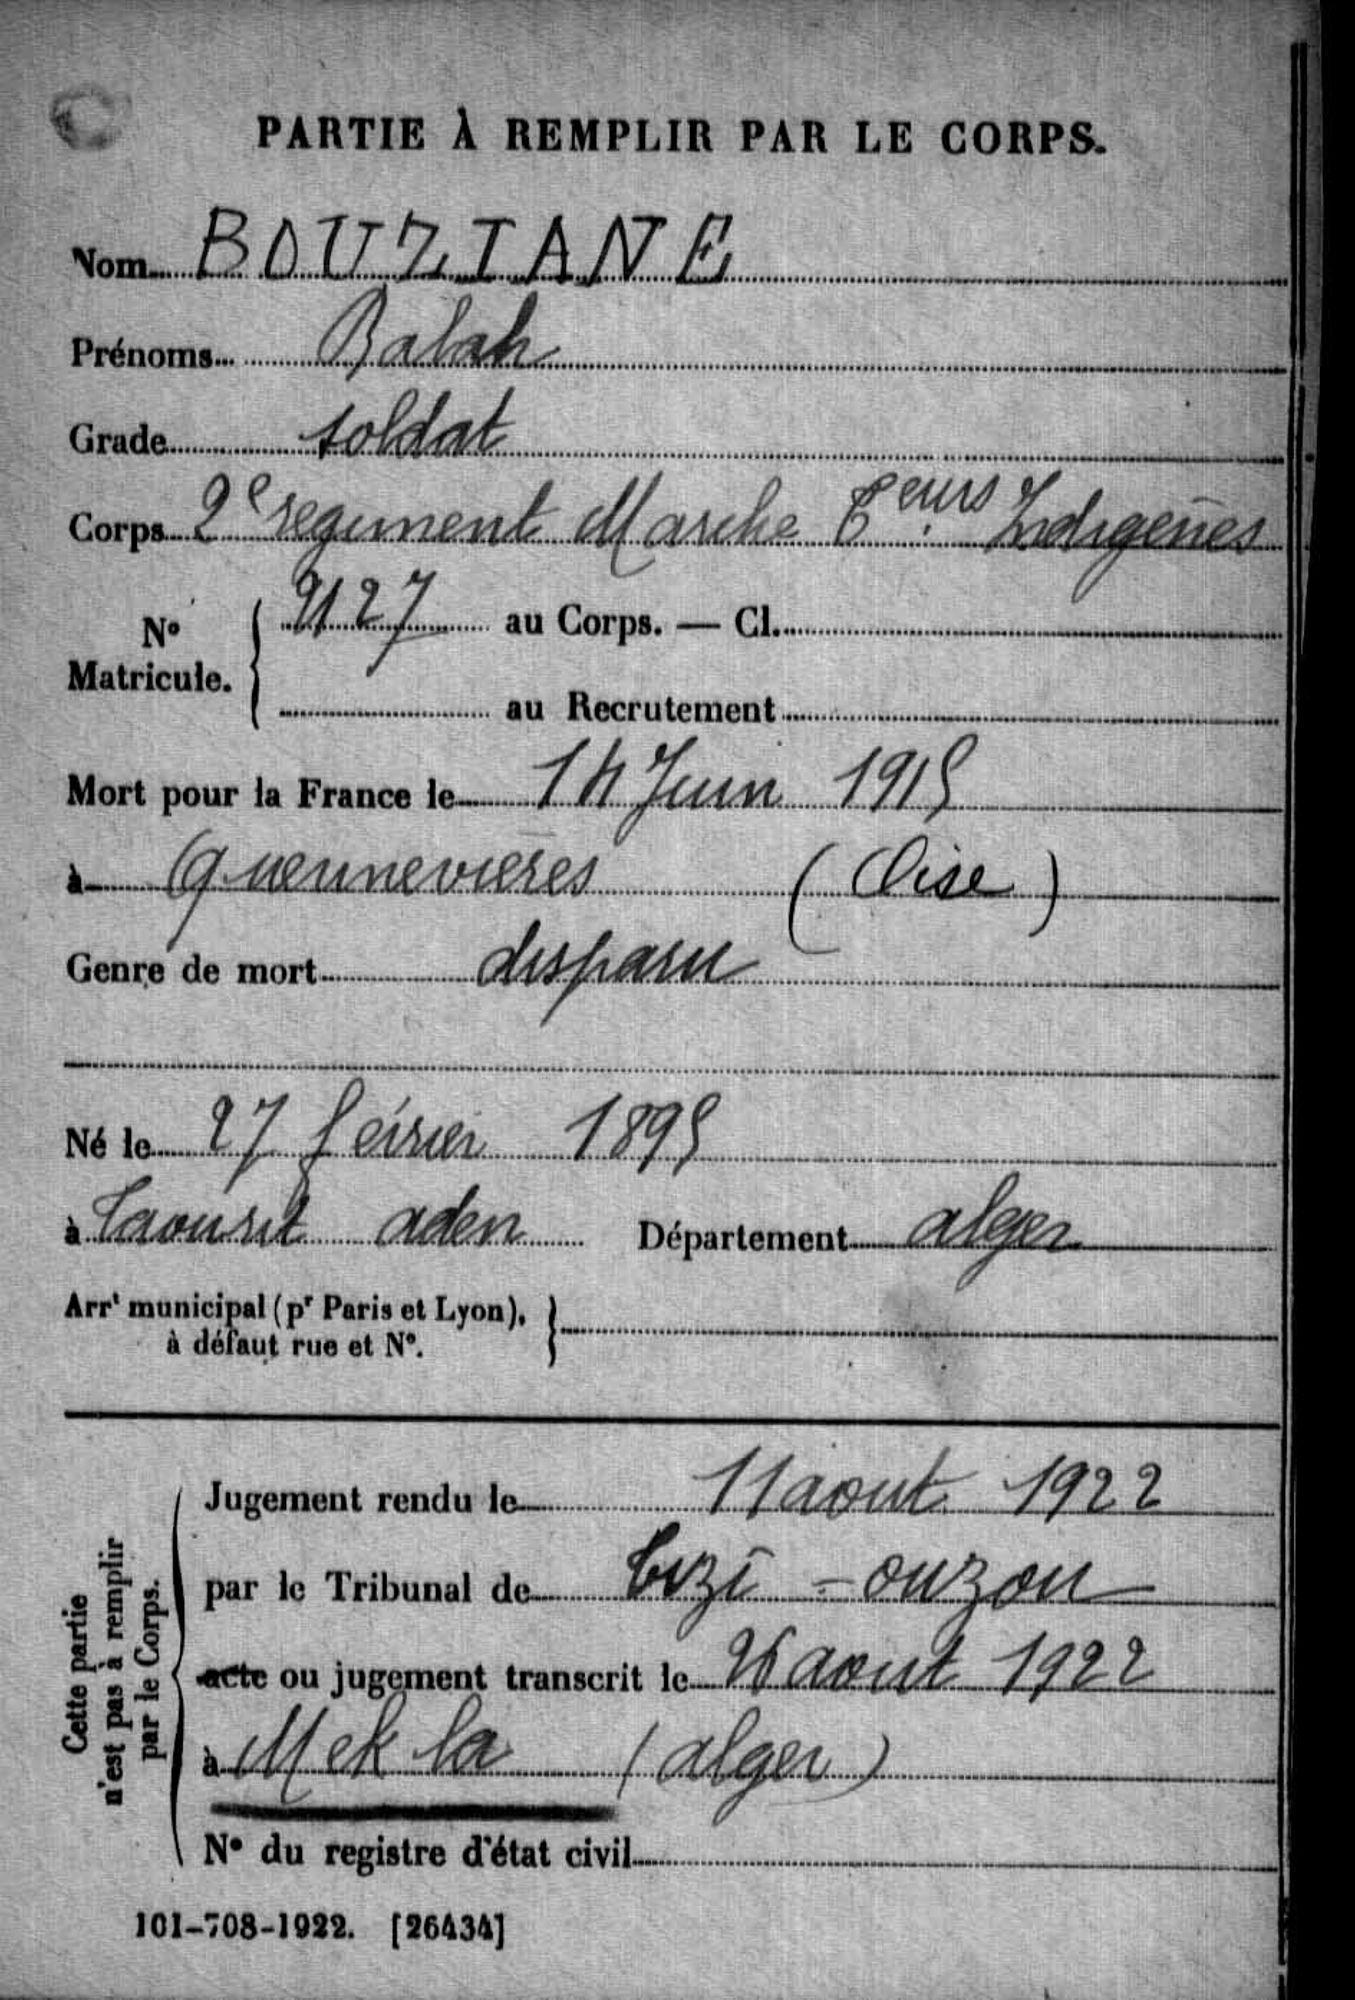 PARTIE À REMPLIR PAR LE CORPS.
Nom BOUZIANE
Prénoms Balah
Grade soldat
Corps 2e regiment Marche Teurs Indigènes
No Matricule. 9127 au Corps. — Cl.
au Recrutement
Mort pour la France le 14 Juin 1915
à Quennevières (Oise)
Genre de mort disparu
Né le 27 février 1895
à Taourit aden Département alger
Arrt municipal (pr Paris et Lyon),
à défaut rue et N°.
Cette partie
n'est pas à remplir
par le Corps.
Jugement rendu le 11 aout 1922
par le Tribunal de tizi - ouzou
acte ou jugement transcrit le 26 aout 1922
à Mekla (alger)
N° du registre d'état civil
101-708-1922. [26434]